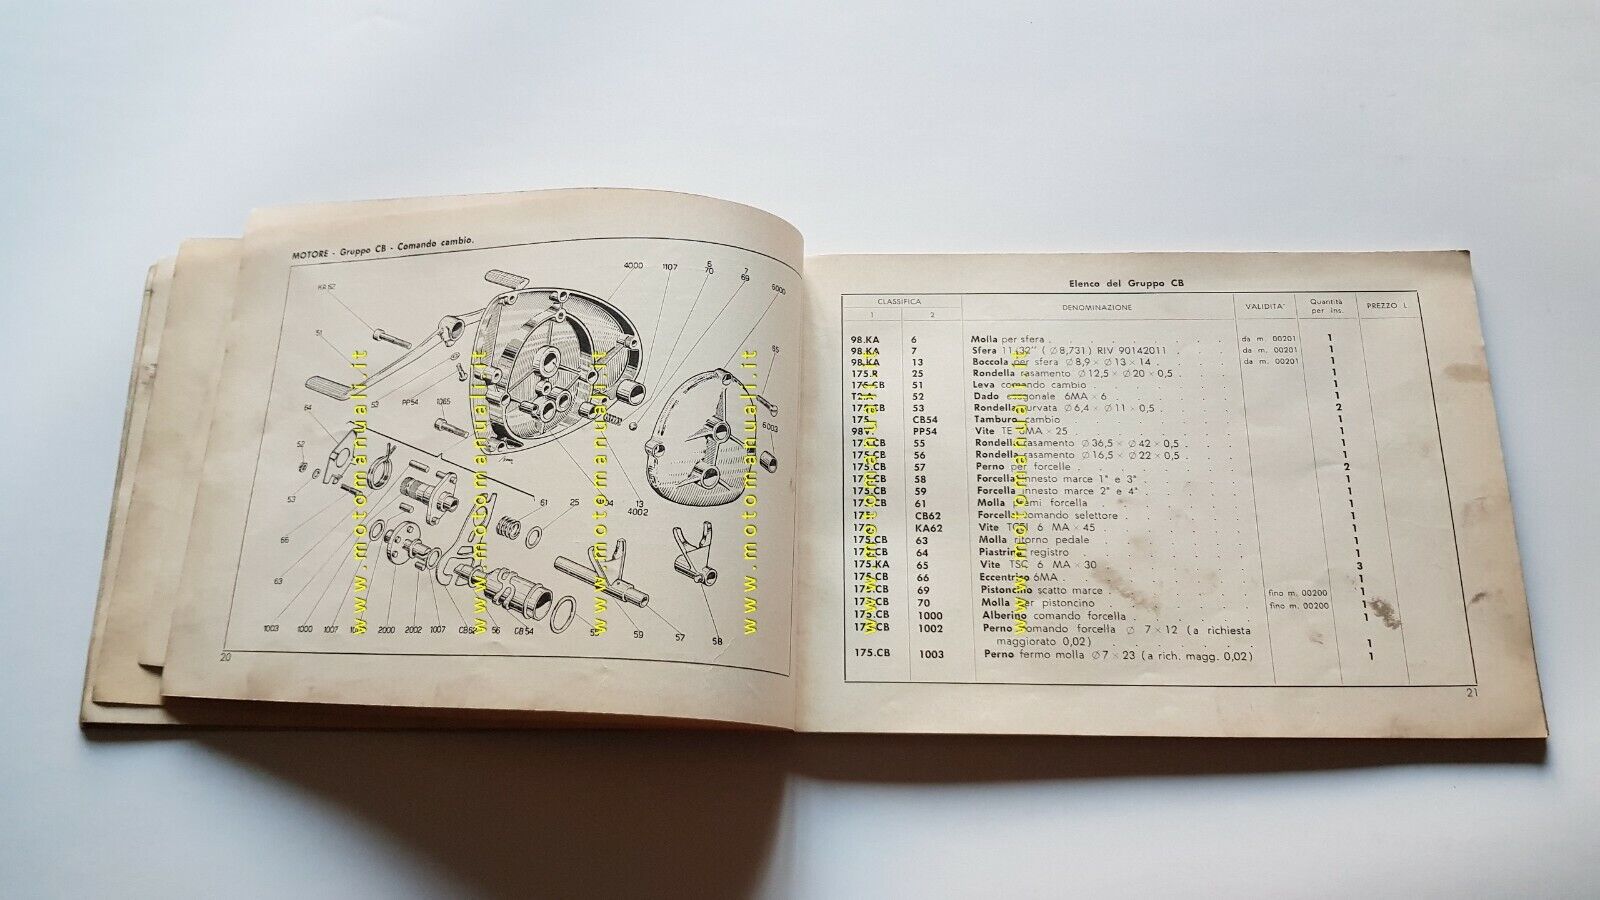 MOTORE - Gruppo CB - Comando cambio.
KA62
4000
1107
6
70
7
69
6000
51
65
53
PP54
1065
64
6003
52
53
61
25
13
4002
66
63
1003
1000
1007
2000
2002
1007
56
CB54
59
57
58
20
www.motomanuali.it
www.motomanuali.it
www.motomanuali.it
www.motomanuali.it
Elenco del Gruppo CB
CLASSIFICA DENOMINAZIONE VALIDITA' Quantità per ins. PREZZO L
1 2
98.KA 6 Molla per sfera da m. 00201 1
98.KA 7 Sfera 11/32" (∅8,731) RIV 90142011 da m. 00201 1
98.KA 13 Boccola per sfera ∅8,9 × ∅13 × 14 da m. 00201 1
175.R 25 Rondella rasamento ∅12,5 × ∅20 × 0,5 1
175.CB 51 Leva comando cambio 1
T2.A 52 Dado esagonale 6MA × 6 1
175.CB 53 Rondella curvata ∅6,4 × ∅11 × 0,5 2
175. CB54 Tamburo cambio 1
98. PP54 Vite TE 6MA × 25 1
175.CB 55 Rondella rasamento ∅36,5 × ∅42 × 0,5 1
175.CB 56 Rondella rasamento ∅16,5 × ∅22 × 0,5 1
175.CB 57 Perno per forcelle 2
175.CB 58 Forcella innesto marce 1" e 3" 1
175.CB 59 Forcella innesto marce 2" e 4" 1
175.CB 61 Molla premi forcella 1
175. CB62 Forcella comando selettore 1
175. KA62 Vite TCEI 6 MA × 45 1
175.CB 63 Molla ritorno pedale 1
175.CB 64 Piastrina registro 1
175.KA 65 Vite TSC 6 MA × 30 3
175.CB 66 Eccentrico 6MA 1
175.CB 69 Pistoncino scatto marce fino m. 00200 1
175.CB 70 Molla per pistoncino fino m. 00200 1
175.CB 1000 Alberino comando forcella 1
175.CB 1002 Perno comando forcella ∅ 7 × 12 (a richiesta
maggiorato 0,02) 1
175.CB 1003 Perno fermo molla ∅7 × 23 (a rich. magg. 0,02) 1
21
www.motomanuali.it
www.motomanuali.it